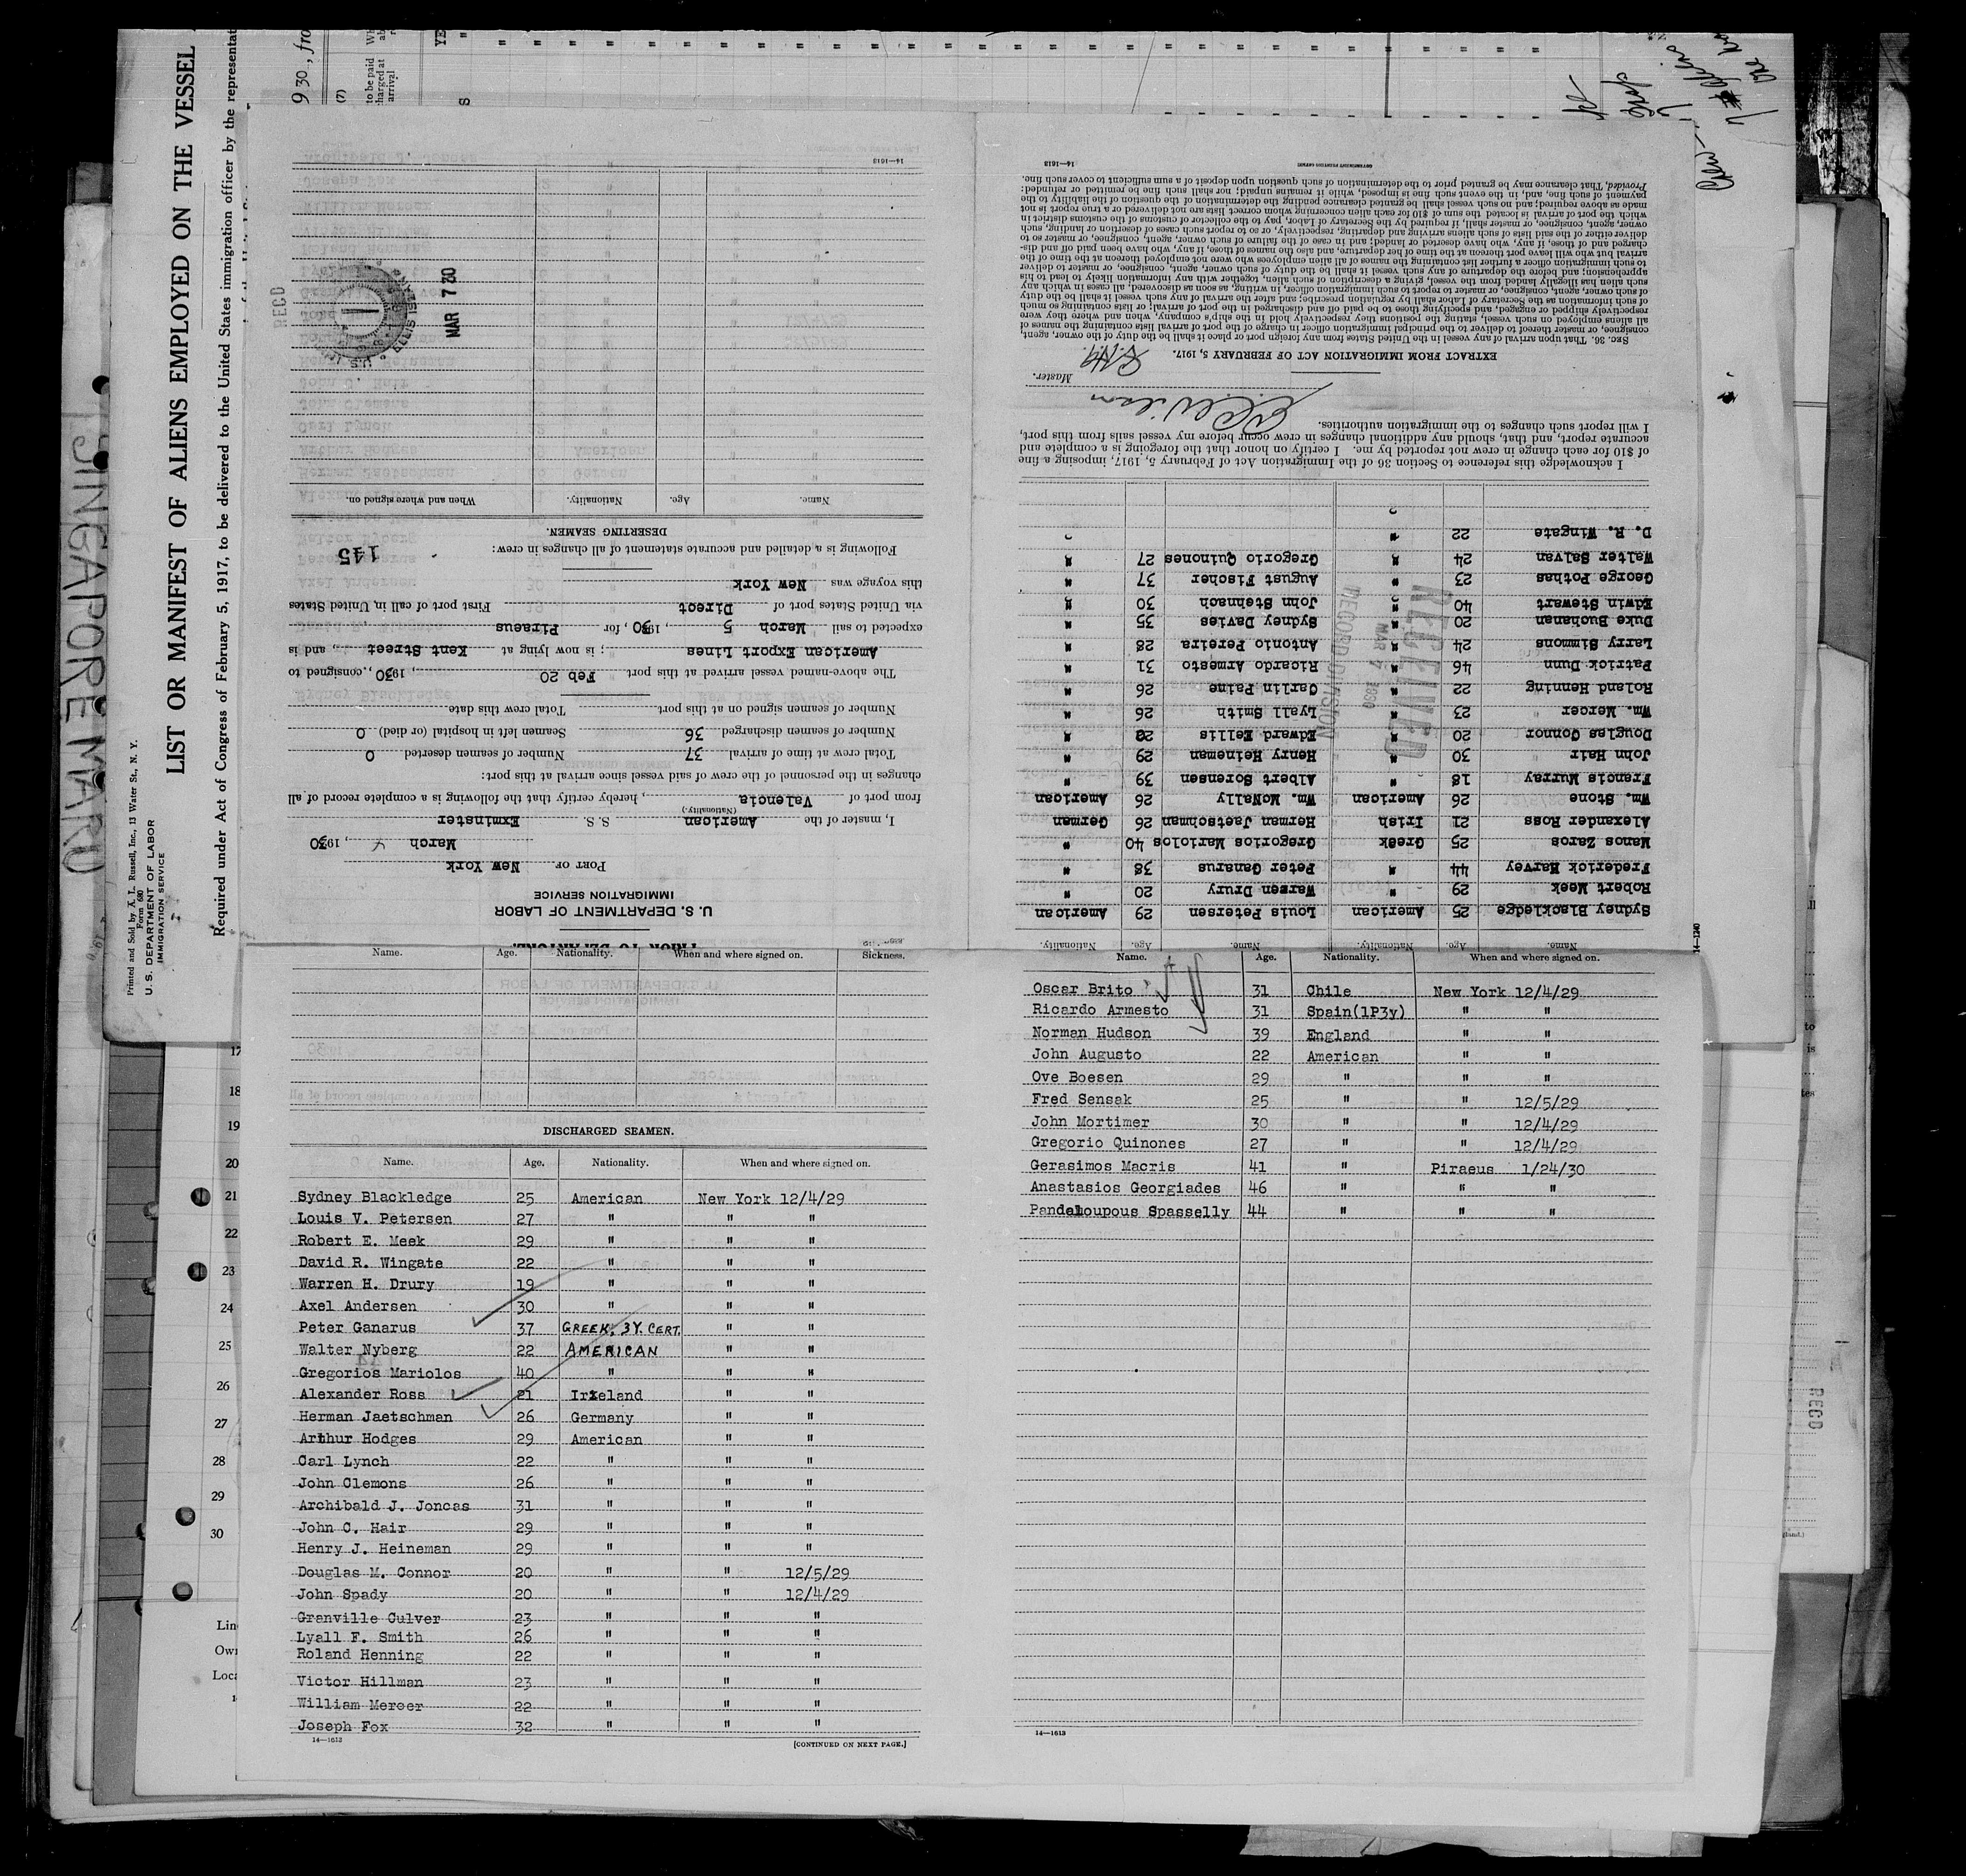 SINGAPORE MARU
Printed and Sold by A. L. Russell, Inc., 13 Water St., N. Y.
Form 680
U. S. DEPARTMENT OF LABOR
IMMIGRATION SERVICE
LIST OR MANIFEST OF ALIENS EMPLOYED ON THE VESSEL
Required under Act of Congress of February 5, 1917, to be delivered to the United States immigration officer by the representat
930, fro
(7)
to be paid
charged at
arrival
U. S. DEPARTMENT OF LABOR
IMMIGRATION SERVICE
PORT OF New York
March 4, 1930
I, master of the American S. S. Exminster
(Nationality.)
from port of Valencia, hereby certify that the following is a complete record of all
changes in the personnel of the crew of said vessel since arrival at this port:
Total crew at time of arrival 37 Number of seamen deserted 0
Number of seamen discharged 36 Seamen left in hospital (or died) 0
Number of seamen signed on at this port Total crew this date
The above-named vessel arrived at this port Feb 20, 1930, consigned to
American Export Lines; is now lying at Kent Street, and is
expected to sail March 5, 1930, for Piraeus
via United States port of Direct First port of call in United States
this voyage was New York
Following is a detailed and accurate statement of all changes in crew:
145
DESERTING SEAMEN.
Name. Age. Nationality. When and where signed on.
REC'D
MAR 7 30
14—1613
Name. Age. Nationality. Name. Age. Nationality.
Sydney Blackledge 25 American Louis Petersen 29 American
Robert Meek 29 " Warren Drury 20 "
Frederick Harvey 44 " Peter Ganarus 38 "
Manos Zaros 25 Greek Gregorios Mariolos 40 "
Alexander Ross 21 Irish Herman Jaetschman 26 German
Wm. Stone 26 American Wm. McNally 26 American
Francis Murray 18 " Albert Sorensen 39 "
John Hair 30 " Henry Heineman 29 "
Douglas Connor 20 " Edward Eellis "
Wm. Mercer 23 " Lyall Smith 26 "
Roland Henning 22 " Carlin Paine 26 "
Patrick Dunn 46 " Ricardo Armesto 31 "
Larry Simmons 24 " Antonio Pereira 28 "
Duke Buchanan 20 " Sydney Davies 35 "
Edwin Stewart 40 " John Stehnach 30 "
George Pothas 23 " August Fischer 37 "
Walter Salvan 24 " Gregorio Quinones 27 "
D. R. Wingate 22 "
RECEIVED
MAR 7 1930
RECORD DIVISION
I acknowledge this reference to Section 36 of the Immigration Act of February 5, 1917, imposing a fine
of $10 for each change in crew not reported by me. I certify on honor that the foregoing is a complete and
accurate report, and that, should any additional changes in crew occur before my vessel sails from this port,
I will report such changes to the immigration authorities.
Master.
EXTRACT FROM IMMIGRATION ACT OF FEBRUARY 5, 1917.
SEC. 36. That upon arrival of any vessel in the United States from any foreign port or place it shall be the duty of the owner, agent,
consignee, or master thereof to deliver to the principal immigration officer in charge of the port of arrival lists containing the names of
all aliens employed on such vessel, stating the positions they respectively hold in the ship's company, when and where they were
respectively shipped or engaged, and specifying those to be paid off and discharged in the port of arrival; or lists containing so much
of such information as the Secretary of Labor shall by regulation prescribe; and after the arrival of any such vessel it shall be the duty
of such owner, agent, consignee, or master to report to such immigration officer, in writing, as soon as discovered, all cases in which any
such alien has illegally landed from the vessel, giving a description of such alien, together with any information likely to lead to his
apprehension; and before the departure of any such vessel it shall be the duty of such owner, agent, consignee, or master to deliver
to such immigration officer a further list containing the names of all alien employees who were not employed thereon at the time of the
arrival but who will leave port thereon at the time of her departure, and also the names of those, if any, who have been paid off and dis-
charged and of those, if any, who have deserted or landed; and in case of the failure of such owner, agent, consignee, or master so to
deliver either of the said lists of such aliens arriving and departing, respectively, or so to report such cases of desertion or landing, such
owner, agent, consignee, or master, shall, if required by the Secretary of Labor, pay to the collector of customs of the customs district in
which the port of arrival is located the sum of $10 for each alien concerning whom correct lists are not delivered or a true report is not
made as above required; and no such vessel shall be granted clearance pending the determination of the question of the liability to the
payment of such fine, and, in the event such fine is imposed, while it remains unpaid; nor shall such fine be remitted or refunded:
Provided, That clearance may be granted prior to the determination of such question upon deposit of a sum sufficient to cover such fine.
14—1613
GOVERNMENT PRINTING OFFICE
14—1240
Name. Age. Nationality. When and where signed on. Sickness.
DISCHARGED SEAMEN.
Name. Age. Nationality. When and where signed on.
Sydney Blackledge 25 American New York 12/4/29
Louis V. Petersen 27 " " "
Robert E. Meek 29 " " "
David R. Wingate 22 " " "
Warren H. Drury 19 " " "
Axel Andersen 30 " " "
Peter Ganarus 37 GREEK, 3Y. CERT. " "
Walter Nyberg 22 AMERICAN " "
Gregorios Mariolos 40 " " "
Alexander Ross 21 Irxeland " "
Herman Jaetschman 26 Germany " "
Arthur Hodges 29 American " "
Carl Lynch 22 " " "
John Clemons 26 " " "
Archibald J. Joncas 31 " " "
John C. Hair 29 " " "
Henry J. Heineman 29 " " "
Douglas M. Connor 20 " " 12/5/29
John Spady 20 " " 12/4/29
Granville Culver 23 " " "
Lyall F. Smith 26 " " "
Roland Henning 22 " " "
Victor Hillman 23 " " "
William Mercer 22 " " "
Joseph Fox 32 " " "
14—1613
[CONTINUED ON NEXT PAGE.]
Name. Age. Nationality. When and where signed on.
Oscar Brito 31 Chile New York 12/4/29
Ricardo Armesto 31 Spain(1P3y) " "
Norman Hudson 39 England " "
John Augusto 22 American " "
Ove Boesen 29 " " "
Fred Sensak 25 " " 12/5/29
John Mortimer 30 " " 12/4/29
Gregorio Quinones 27 " " 12/4/29
Gerasimos Macris 41 " Piraeus 1/24/30
Anastasios Georgiades 46 " " "
Pandeloupous Spasselly 44 " " "
14—1613
17
18
19
20
21
22
23
24
25
26
27
28
29
30
Lin
Own
Loca
REC'D